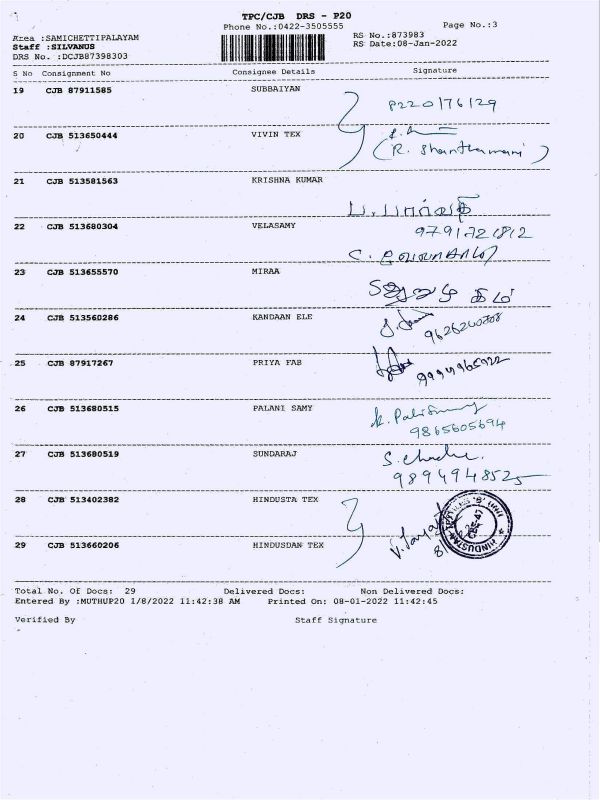 TPC/CJB DRS - P20
Phone No.:0422-3505555
Page No.:3
Area :SAMICHETTIPALAYAM
RS No.:873983
Staff :SILVANUS
RS Date:08-Jan-2022
DRS No. :DCJB87398303
S No Consignment No Consignee Details Signature
19 CJB 87911585 SUBBAIYAN
P220176129
20 CJB 513650444 VIVIN TEX
(R. Shanthamani)
21 CJB 513581563 KRISHNA KUMAR
ப. பார்வதி
22 CJB 513680304 VELASAMY
9791721812
23 CJB 513655570 MIRAA
24 CJB 513560286 KANDAAN ELE
25 CJB 87917267 PRIYA FAB
26 CJB 513680515 PALANI SAMY
9865605694
27 CJB 513680519 SUNDARAJ
9894948525
28 CJB 513402382 HINDUSTA TEX
29 CJB 513660206 HINDUSDAN TEX
Total No. Of Docs: 29 Delivered Docs: Non Delivered Docs:
Entered By :MUTHUP20 1/8/2022 11:42:38 AM Printed On: 08-01-2022 11:42:45
Verified By Staff Signature